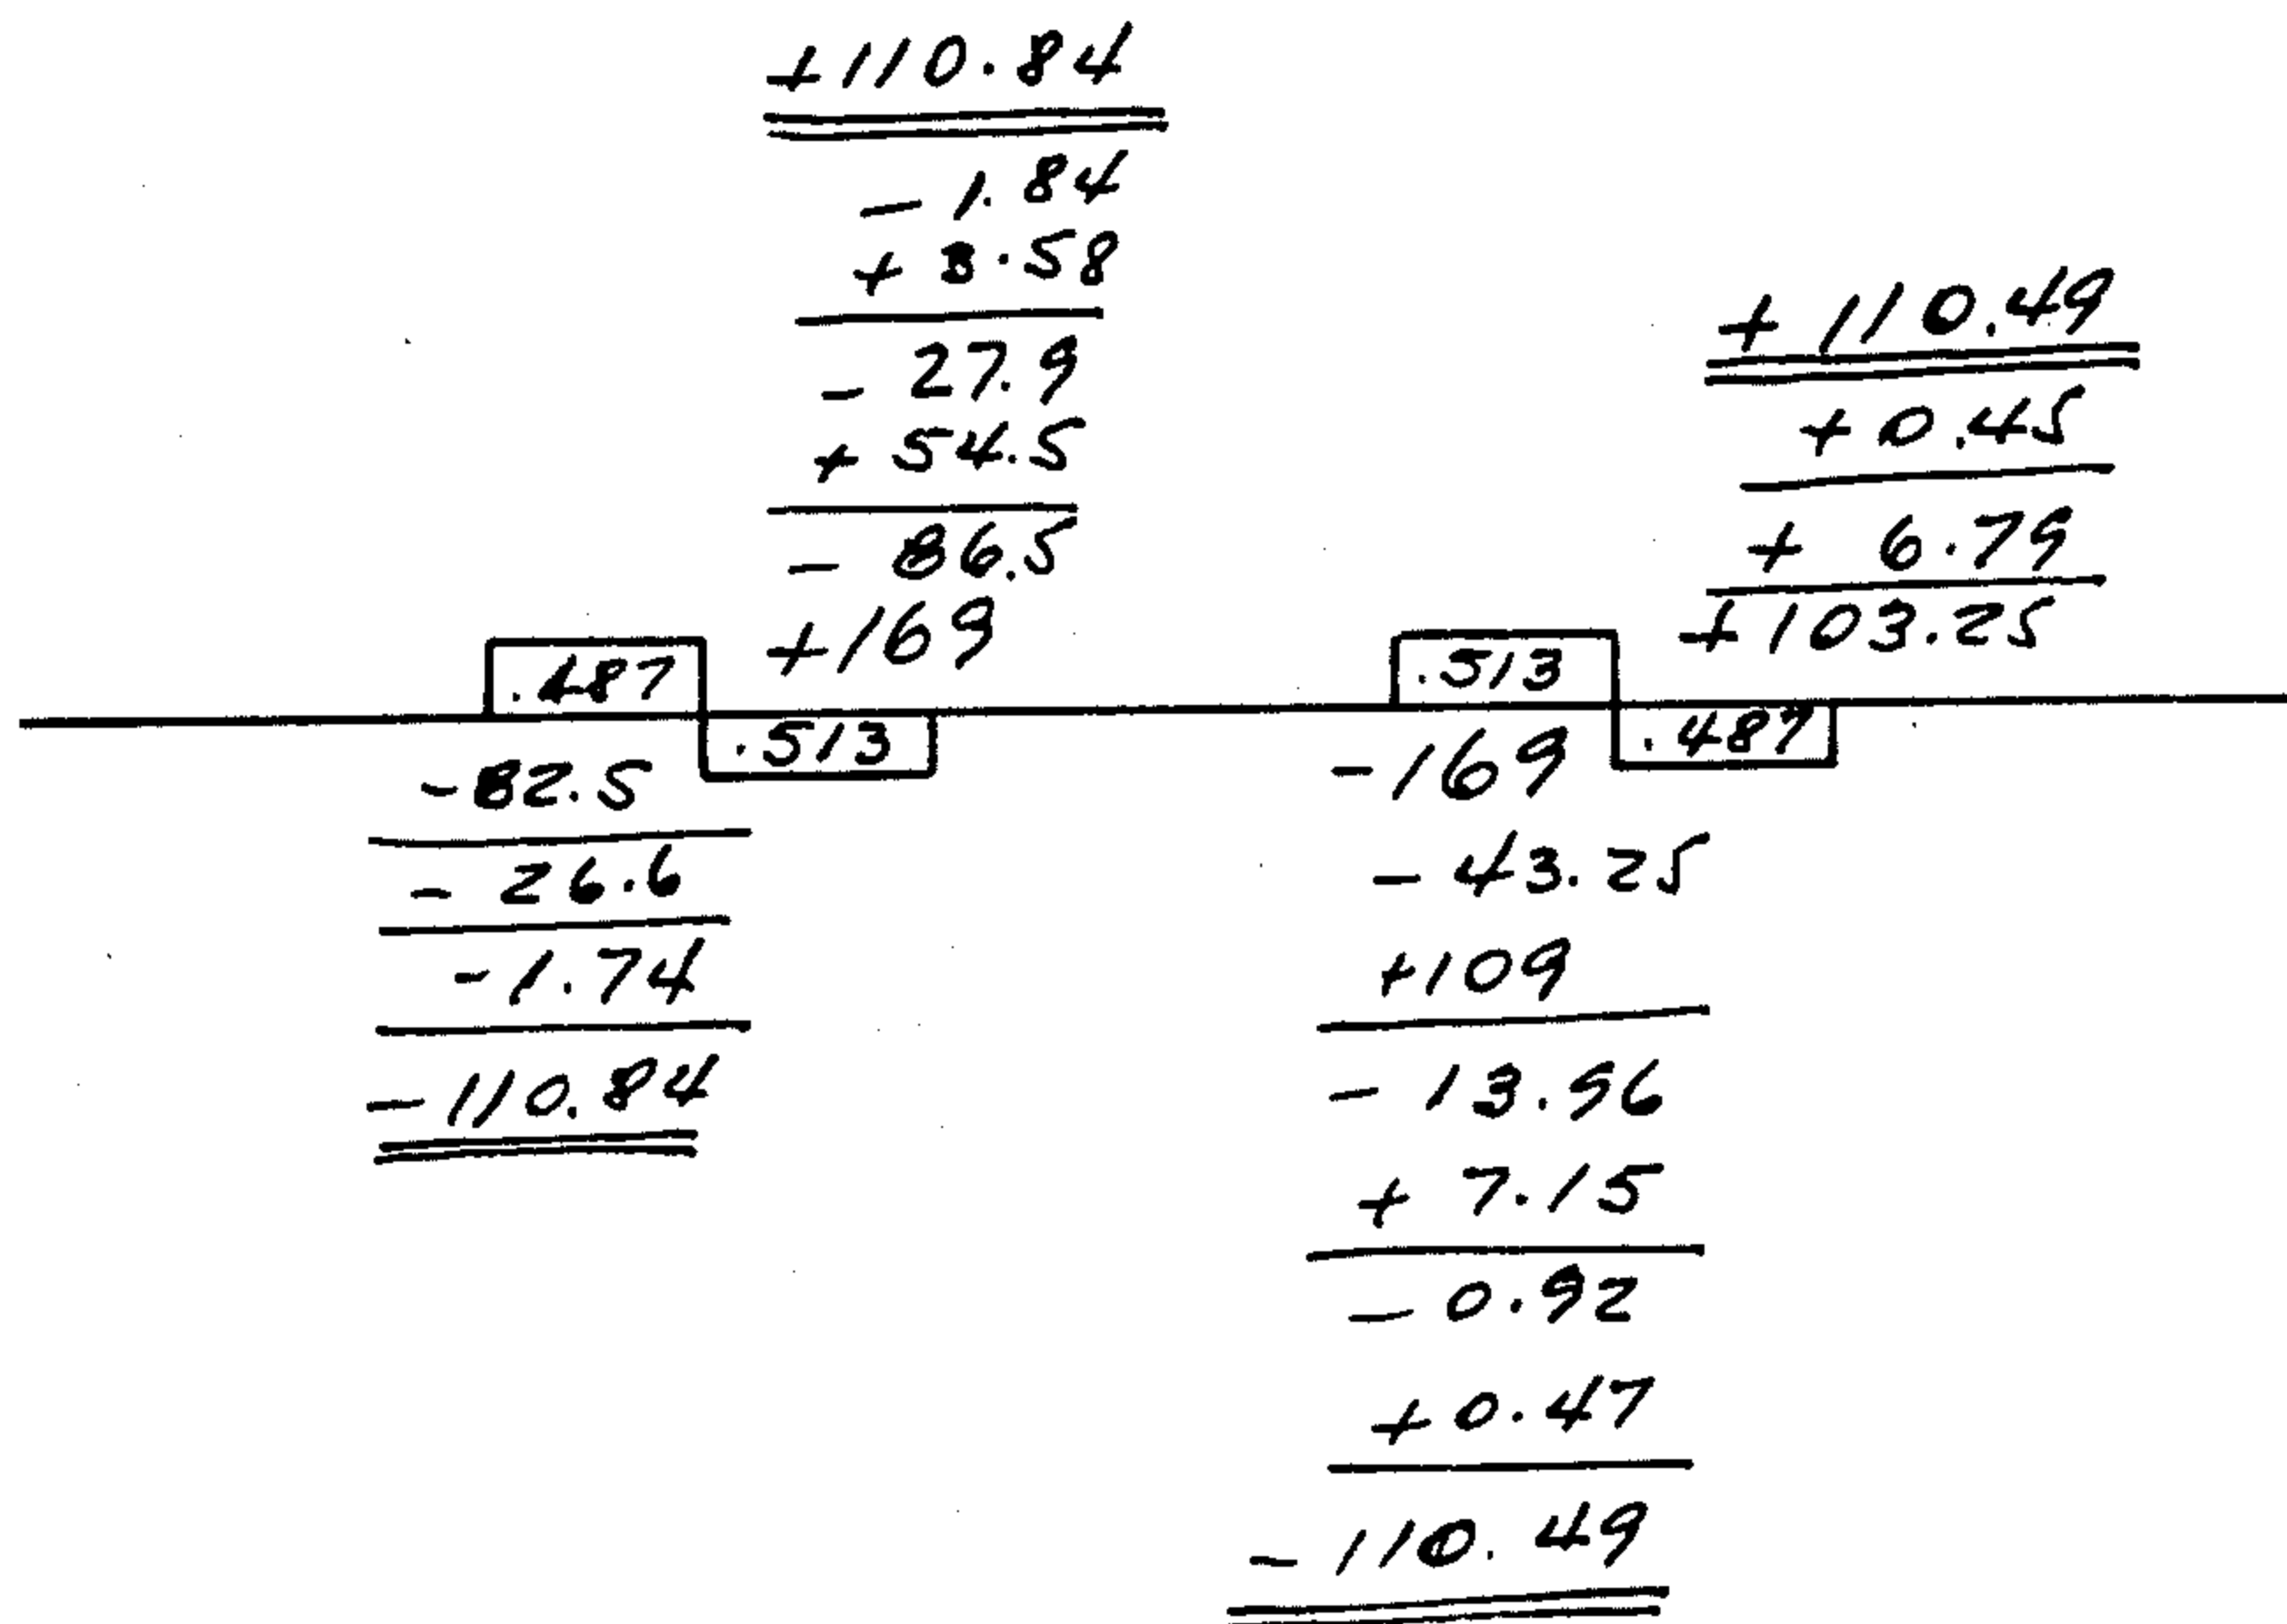 +110.84
- 1.84
+ 3.58
- 27.9
+ 54.5
- 86.5
+169
.487
.513
-82.5
- 26.6
-1.74
-110.84
+ 110.49
+ 0.45
+ 6.79
+103.25
.513
.487
-169
- 43.25
+109
- 13.96
+ 7.15
- 0.92
+ 0.47
- 110.49